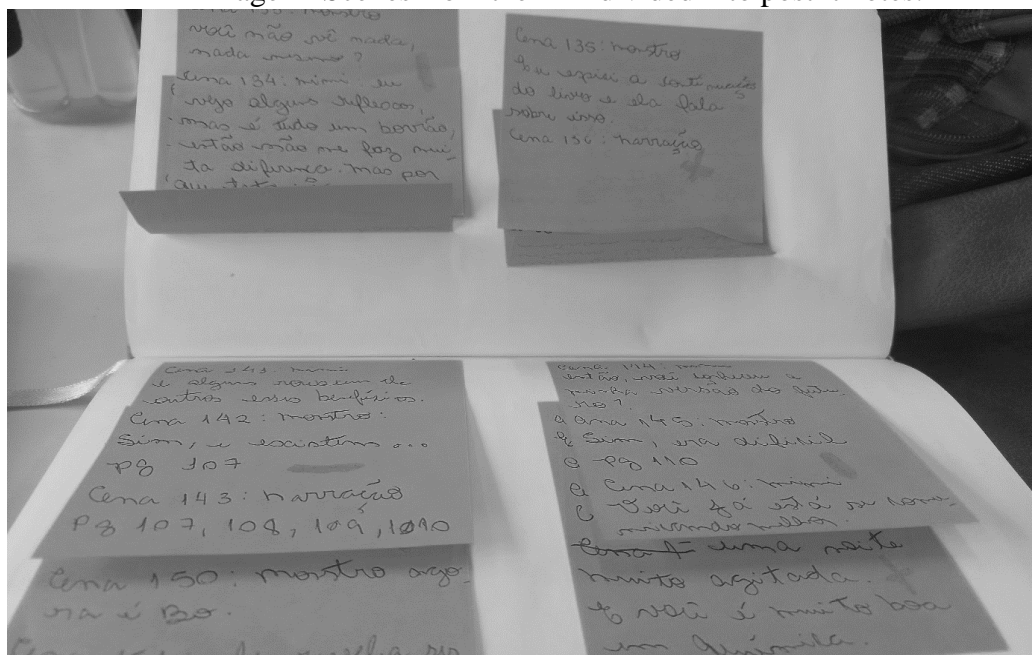 você não vê nada,
nada mesmo?
Cena 134: mimi: eu
vejo alguns reflexos,
mas é tudo um borrão,
então não me faz mui-
ta diferença. mas por
Cena 135: monstro
do livro e ela fala
sobre isso.
Cena 136: narração
e alguns
outros esses benefísios.
Cena 142: monstro:
Sim, e existem ...
pg 107
Cena 143: narração
Pg 107, 108, 109, 1010
Cena 150: monstro ago-
ra é Bo.
então, você
minha versão do
no?
Cena 145: monstro
Sim, era difícil
pg 110
Cena 146: mimi
Você já está se
uma noite
muito agitada.
E você é muito boa
em química.